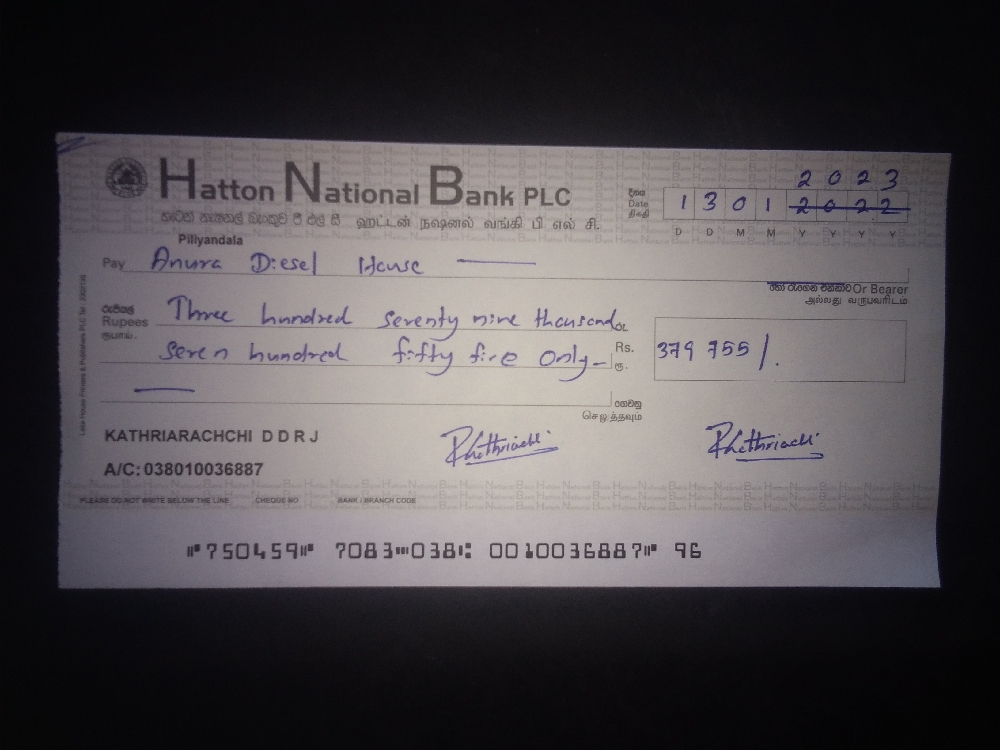 HATTON NATIONAL BANK PLC
හටන් නැෂනල් බැංකුව පී එල් සී ஹட்டன் நஷனல் வங்கி பி எல் சி.
2 0 2 3
දිනය
Date
திகதி
1 3 0 1 2 0 2 2
D D M M Y Y Y Y
Piliyandala
Pay Anura Diesel House
හෝ රැගෙන එන්නාට Or Bearer
அல்லது வருபவரிடம்
රුපියල්
Rupees Three hundred seventy nine thousand
ரூபாய்.
seven hundred fifty five only
රු.
Rs. 379 755/.
ரூ.
ගෙවනු
செலுத்தவும்
KATHRIARACHCHI D D R J
A/C: 038010036887
PLEASE DO NOT WRITE BELOW THE LINE CHEQUE NO BANK / BRANCH CODE
⑈750459⑈ 7083⑉038⑆ 0010036887⑈ 96